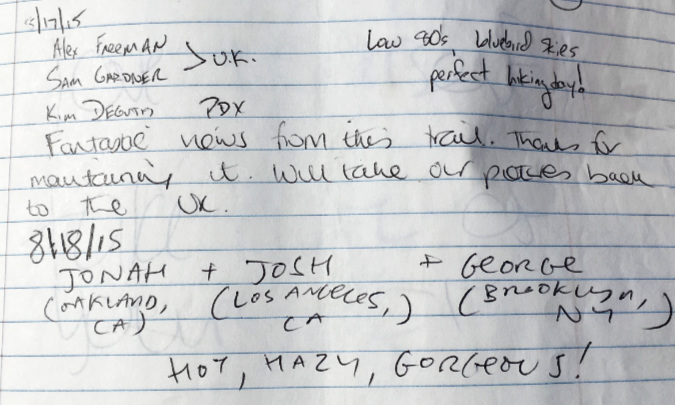 8/17/15
Alex FREEMAN
SAM GARDNER > U.K.
Low 90's, bluebird skies
perfect hiking day!
Kim PDX
Fantastic views from this trail. Thanks for
maintaining it. Will take our pictures back
to the UK.
8/18/15
JONAH + JOSH + GEORGE
(OAKLAND, CA) (LOS ANGELES, CA) (BROOKLYN, NY)
HOT, HAZY, GORGEOUS!